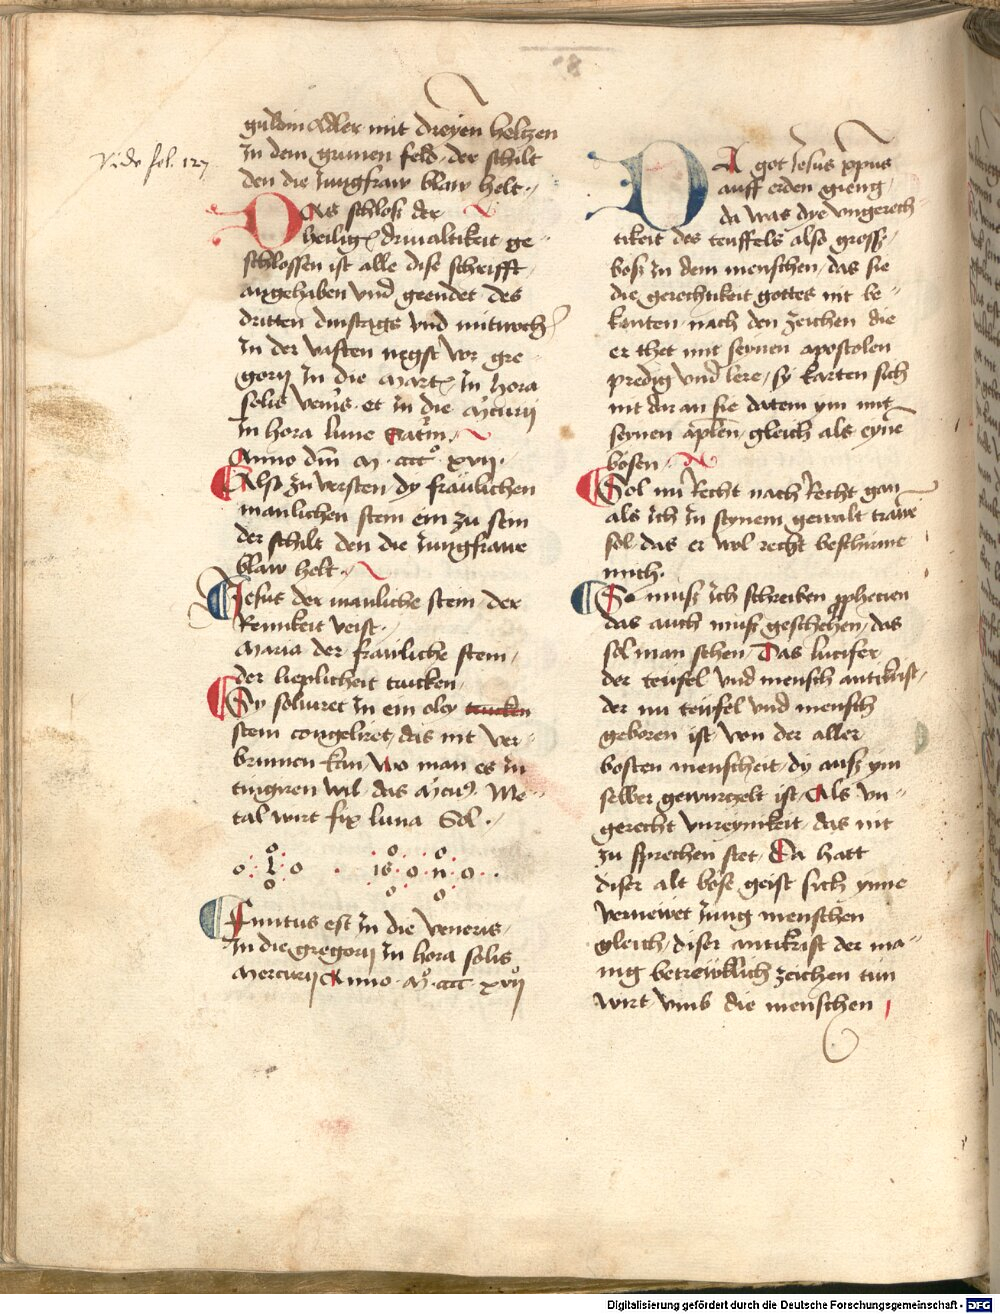 Vide fol. 127
guldin Adler mit dreyen helczen
In dem grunen feld, der schilt
den die Jungfraw blaw helt.
DAs schloß der
heilig driualtikeit ge-
schlossen ist alle dise schrifft
angehaben vnd geendet des
dritten dinstags vnd mitwoch
In der vasten negst vor gre-
gorij In die Mart In hora
solis veneris et In die Mercurij
In hora lune Saturni
Anno dm M cccc° xvij.
Also zu versten dy fräulichen
manlichen stein ein zu sein
der schilt den die Jungfrawe
blaw helt.
Jesus der manliche stein der
Reinikeit veist.
Maria der frauliche stein,
der lieplicheit trucken,
Dy soluiret In ein oley trucken
stein congeliret, das nit ver-
brinnen kan, wo man es In
tingiren wil, das Mercur Me-
tal wirt fix luna Sol.
Finitus est In die veneris,
In die gregorij In hora solis
Mercurij Anno M° cccc xvij°
DA got Jesus xpus
auff erden gieng,
da was dye vngerech-
tikeit des teuffels also gross,
boß In dem menschen, das sie
die gerechtikeit gottes nit be-
kanten, nach den zeichen die
er thet mit seynen apostolen
predig vnd lere, sy karten sich
nit dar an sie datem ym mit
seynen apleñ, gleich als eynē
bosen.
Sol mir Recht nach Recht gan
als Ich In seynem gewalt trawe
sol, das er wol recht beschirme
mich.
So muß Ich schreiben prophecien
das auch muß geschehen, das
sol man sehen Das lucifer
der teufel vnd mensch antikrist,
der nu teufel vnd mensch
geboren ist, von der aller
bosten menscheit, dy auß ym
selber gewurczelt ist, Als vn-
gerecht vnreynikeit, das nit
zu sprechen stet, Da hatt
diser alt böse geist sich ynne
vernewet Jung menschen
gleich, diser antikrist der ma-
nig betrewklich zeichen tun
wirt, vmb die menschen
Digitalisierung gefördert durch die Deutsche Forschungsgemeinschaft - DFG